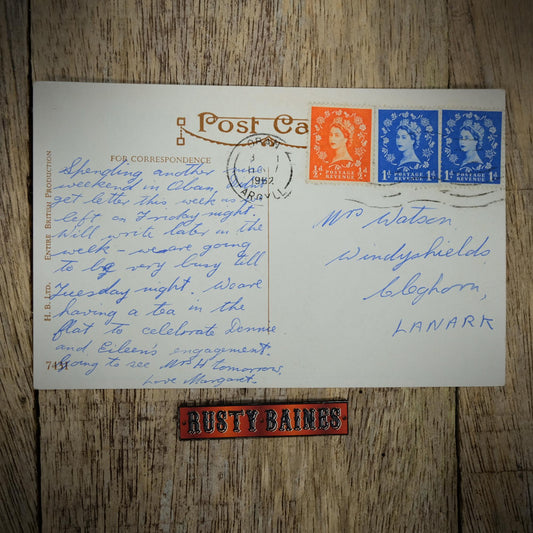 Post Ca
FOR CORRESPONDENCE
Spending another
weekend in Oban,
get letter this week as
left on Friday night.
Will write later in the
week - we are going
to be very busy till
Tuesday night. We are
having a tea in the
flat to celebrate Dennie
and Eileen's engagement.
Going to see Mrs H tomorrow
Love Margaret.
H. B. LTD. ENTIRE BRITISH PRODUCTION
7431
OBAN
1962
ARGYLL
½d POSTAGE REVENUE ½d
1d POSTAGE REVENUE 1d
1d POSTAGE REVENUE 1d
Mrs Watson.
Windyshields
Cleghorn,
LANARK
RUSTY BAINES